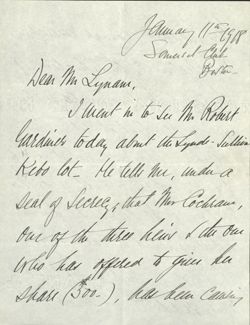 January 11th 1918
Somerset Club
Boston
Dear Mr Lynam,
I went in to see Mr Robert
Gardiner today about the Lynde-
Kebo lot - He tells me, under a
seal of Secrecy, that Mrs Cochrane,
one of the three heirs & the one
who has offered to give her
share (300-), has been causing